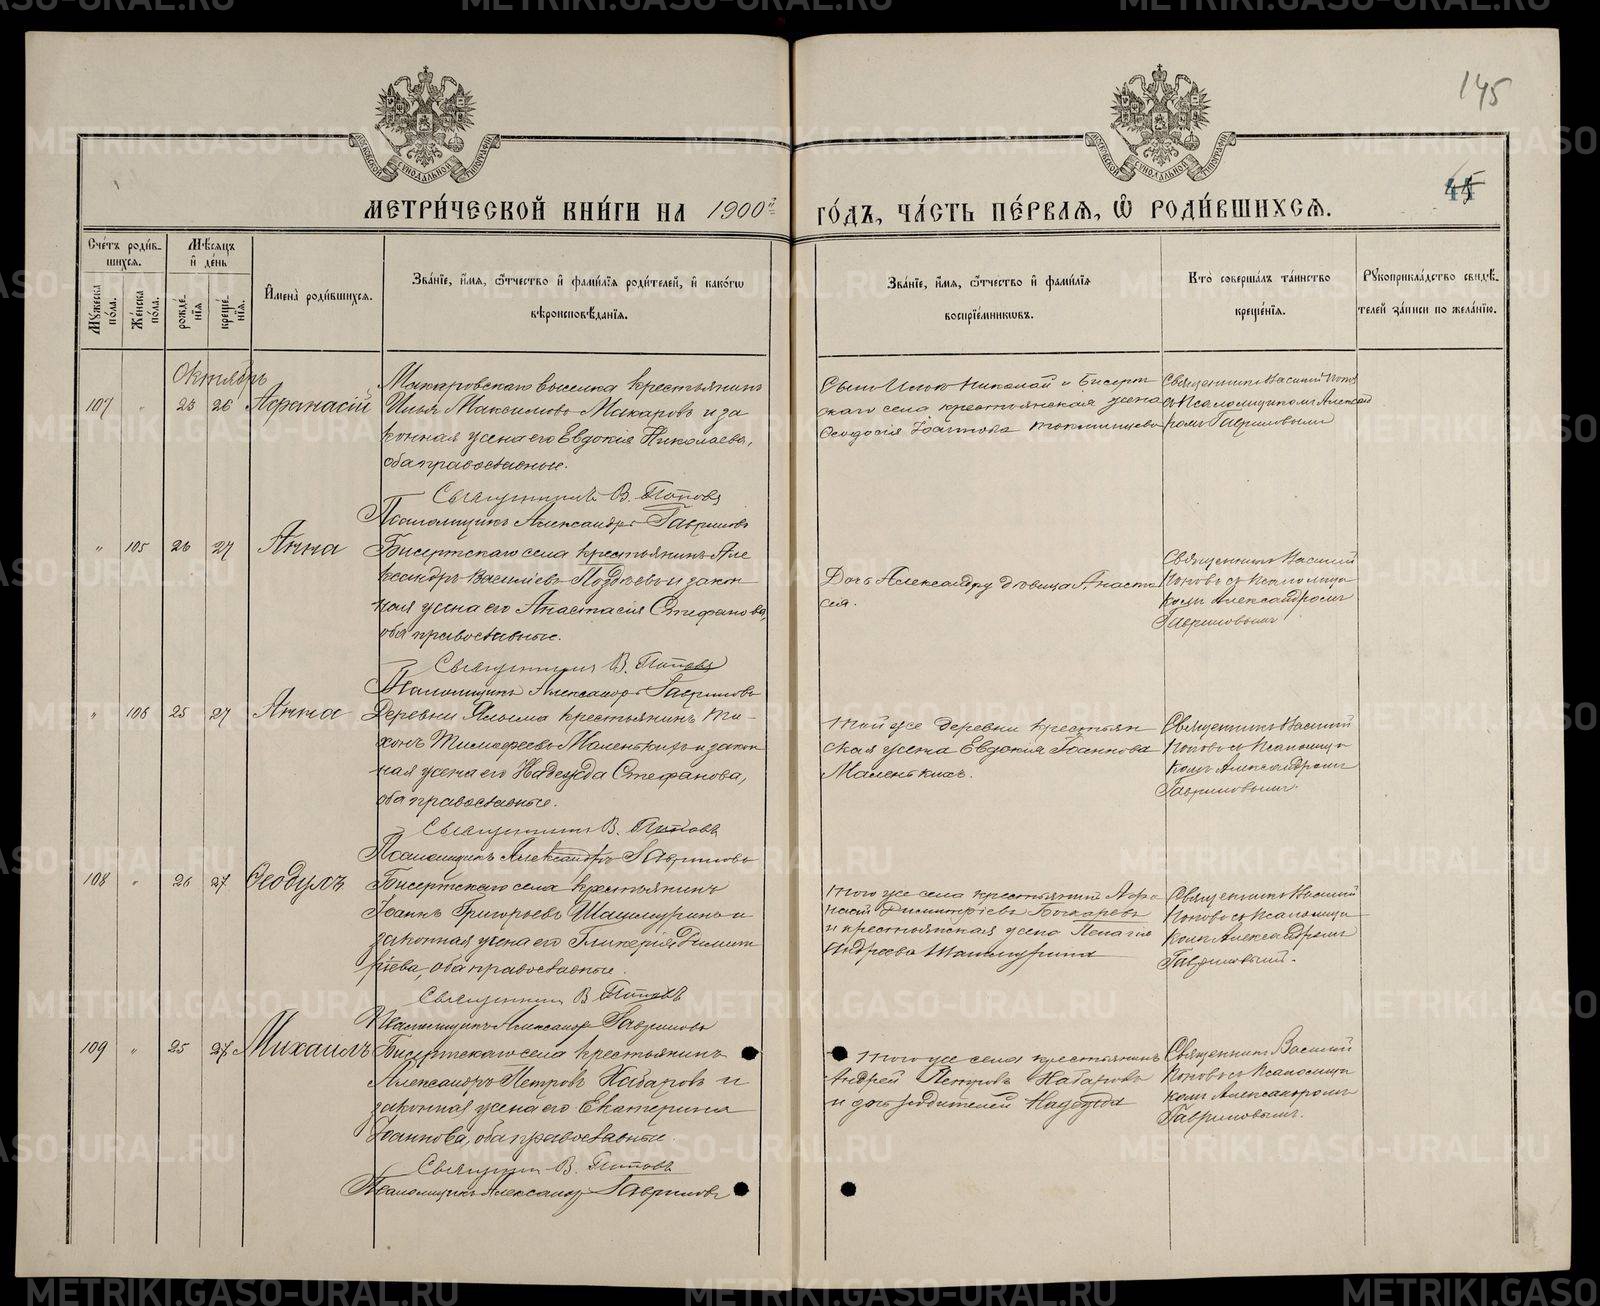 145
45
МЕТРИ́ЧЕСКОЙ КНИ́ГИ НА 1900й ГО́ДЪ, ЧА́СТЬ ПЕ́РВАЯ, Ѡ РОДИ́ВШИХСЯ.
Сче́тъ роди́в-
шихся.
Му́жеска по́ла.
Же́нска по́ла.
Мѣ́сяцъ
и́ де́нь
рожде́нїя
креще́нїя.
И́мена̀ роди́вшихся.
Зва́нїе, и́мя, ѻ́тчество и́ фами́лїя роди́телей, и́ како́гѡ
вѣроисповѣ́данїя.
Зва́нїе, и́мя, ѻ́тчество и́ фами́лїя
воспрїе́мниковъ.
Кто̀ соверша́лъ та́инство
креще́нїя.
Рукоприкла́дство свидѣ́-
телей за́писи по жела́нїю.
Октябрь
107 " 25 26 Аѳанасій
Макаровскаго выселка крестьянинъ
Илья Максимовъ Макаровъ и за
конная жена его Евдокія Николаева,
оба православные.
Священникъ В. Поповъ
Псаломщикъ Александръ Гавриловъ
Николай и Бисерт
скаго села крестьянская жена
Ѳеодосія Іоаннова
Священникъ Василій Попов
съ Псаломщикомъ Алексан
ромъ Гавриловымъ
" 105 26 27 Анна
Бисертскаго села крестьянинъ Але
ксандръ Василіевъ Поздѣевъ и закон
ная жена его Анастасія Стефанова,
оба православные.
Священникъ В. Поповъ
Псаломщикъ Александръ Гавриловъ
Дочь Александру дѣвица Анаста
сія.
Священникъ Василій
Поповъ съ Псаломщи
комъ Александромъ
Гавриловымъ
" 106 25 27 Анна
Деревни крестьянинъ Ти-
хонъ Тимофеевъ Маленькихъ и закон
ная жена его Надежда Стефанова,
оба православные.
Священникъ В. Поповъ
Псаломщикъ Александръ Гавриловъ
Той же деревни крестьян
ская жена Евдокія Іоаннова
Маленькихъ.
Священникъ Василій
Поповъ съ Псаломщи
комъ Александромъ
Гавриловымъ.
108 " 26 27 Ѳеодулъ
Бисертскаго села крестьянинъ
Іоаннъ Григорьевъ Шашмуринъ и
законная жена его Гликерія Димит
ріева, оба православные.
Священникъ В. Поповъ
Псаломщикъ Александръ Гавриловъ
Того же села крестьянинъ Аѳа
насій Димитріевъ Бочкаревъ
и крестьянская жена Пелагія
Андреева Шашмурина
Священникъ Василій
Поповъ съ Псаломщи
комъ Александромъ
Гавриловымъ.
109 " 25 27 Михаилъ
Бисертскаго села крестьянинъ
Александръ Петровъ Набаровъ и
законная жена его Екатерина
Іоаннова, оба православные.
Священникъ В. Поповъ
Псаломщикъ Александръ Гавриловъ
Того же села крестьянинъ
Андрей Петровъ Набаровъ
и дочь родителей Надежда
Священникъ Василій
Поповъ съ Псаломщи
комъ Александромъ
Гавриловымъ.
METRIKI.GASO-URAL.RU